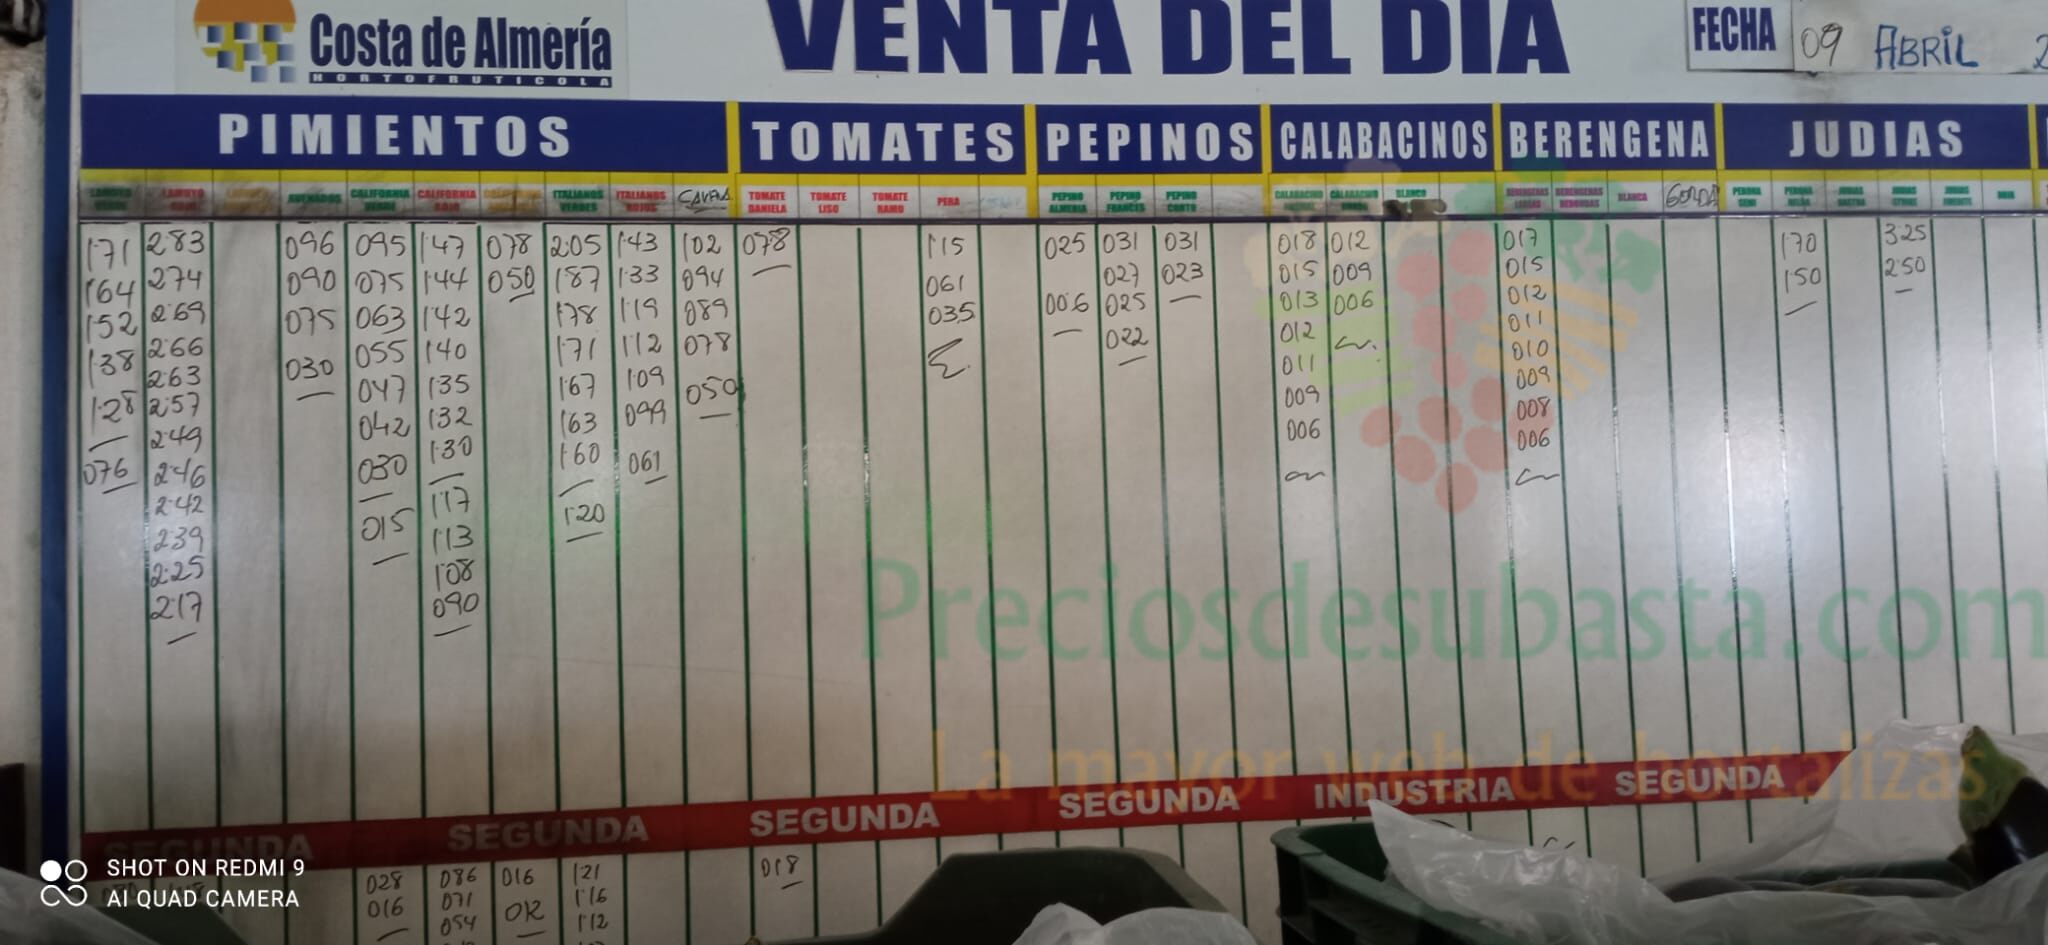 Costa de Almería
HORTOFRUTICOLA
VENTA DEL DIA
FECHA 09 ABRIL
PIMIENTOS TOMATES PEPINOS CALABACINOS BERENGENA JUDIAS
CALIFORNIA ROJO ITALIANOS VERDES ITALIANOS ROJOS TOMATE DANIELA TOMATE LISO TOMATE RAMO PERA PEPINO ALMERIA PEPINO FRANCES PEPINO CORTO BLANCA GORDA
1'71 2'83 096 095 1'47 078 2'05 1'43 102 078 1'15 025 031 031 018 012 017 1'70 3'25
1'64 2'74 090 075 1'44 050 1'87 1'33 094 061 006 027 023 015 009 015 1'50 2'50
1'52 2'69 075 063 1'42 1'78 1'19 089 035 025 013 006 012
1'38 2'66 030 055 1'40 1'71 1'12 078 022 012 011
1'28 2'63 047 1'35 1'67 1'09 050 011 010
076 2'57 042 1'32 1'63 099 009 009
2'49 030 1'30 1'60 061 006 008
2'46 015 1'17 1'20 006
2'42 1'13
2'39 1'08
2'25 090
2'17
Preciosdesubasta.com
La mayor web de hortalizas
SEGUNDA SEGUNDA SEGUNDA SEGUNDA INDUSTRIA SEGUNDA
028 086 016 1'21 018
016 071 OK 1'16
054 1'12
SHOT ON REDMI 9
AI QUAD CAMERA